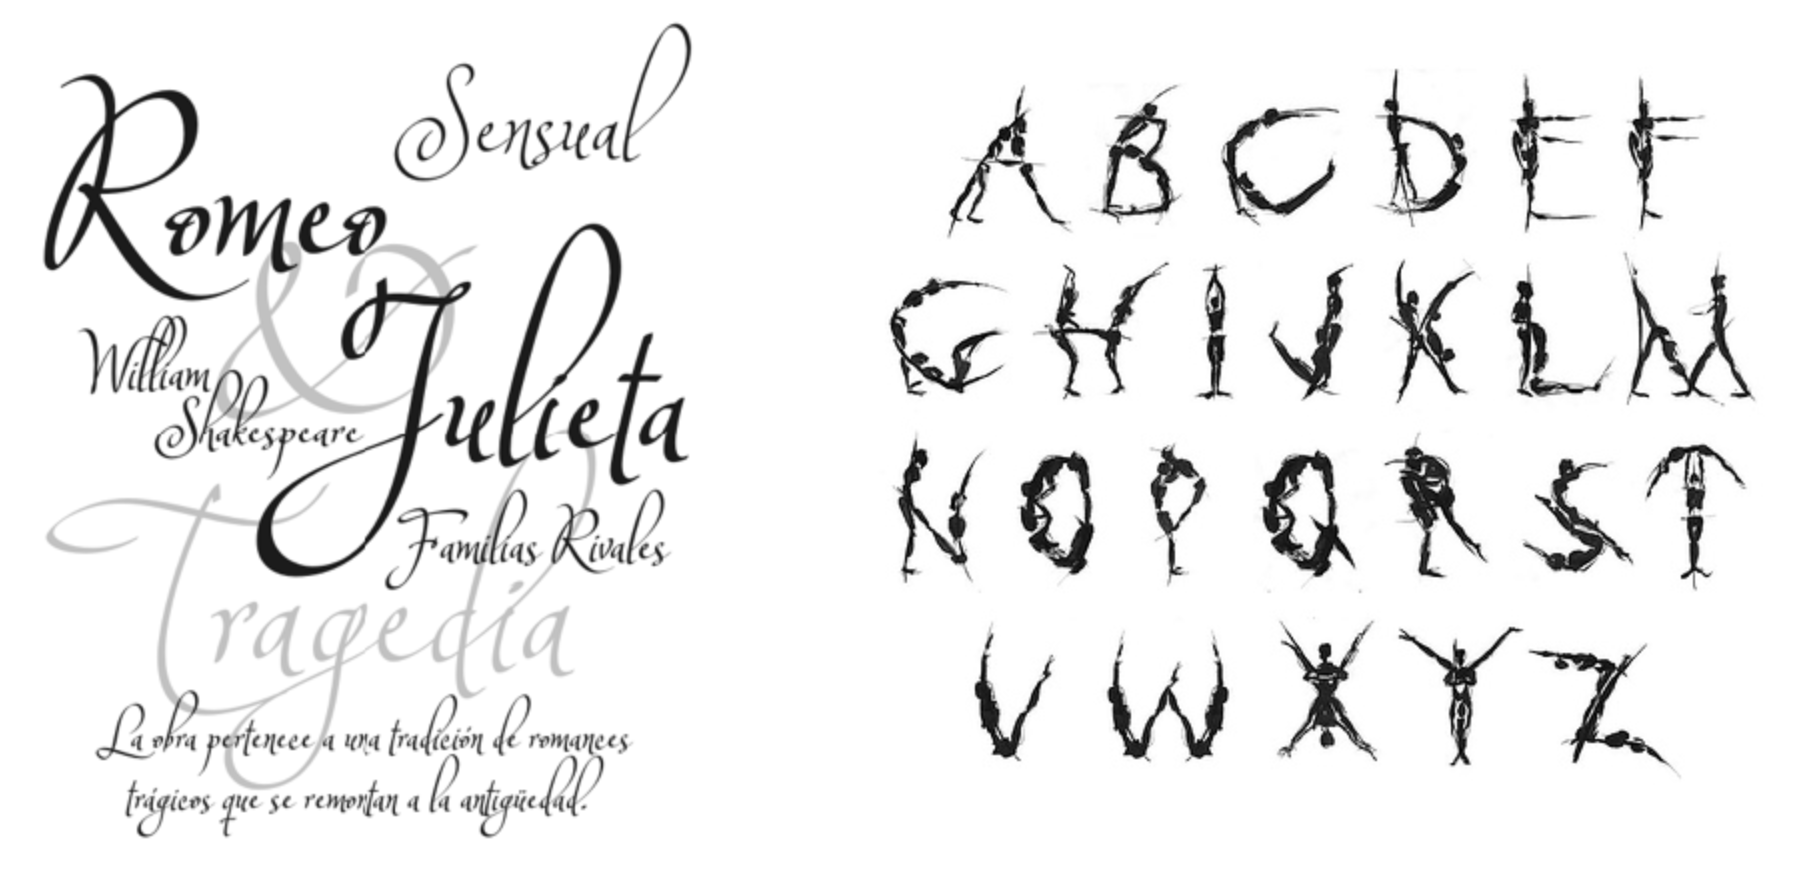 Sensual
Romeo
&
Julieta
William
Shakespeare
Familias Rivales
Tragedia
La obra pertenece a una tradición de romances
trágicos que se remontan a la antigüedad.
A B C D E F
G H I J K L M
N O P Q R S T
V W X Y Z